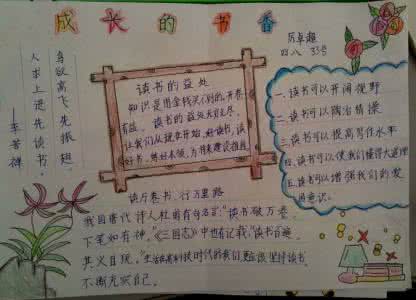 成长的书香
历卓超
四八 33号
鸟欲高飞先振翅
人求上进先读书
——李苦禅
读书的益处
知识是用金钱买不到的,开卷
有益。读书的益处大无尽,
让我们从现在开始,好读书,读
好书,
一、读书可以开阔视野
二、读书可以陶冶情操
三、读书可以提高写作水平
四、读书可以使我们懂得大道理
五、读书可以增强我们的爱
国意识。
读万卷书,行万里路
我国唐代诗人杜甫有句名言:“读书破万卷,
下笔如有神。”《三国志》中也有记载:“读书百遍,
其义自现。”生活在高科技时代的我们更应该坚持读书,
不断充实自己。